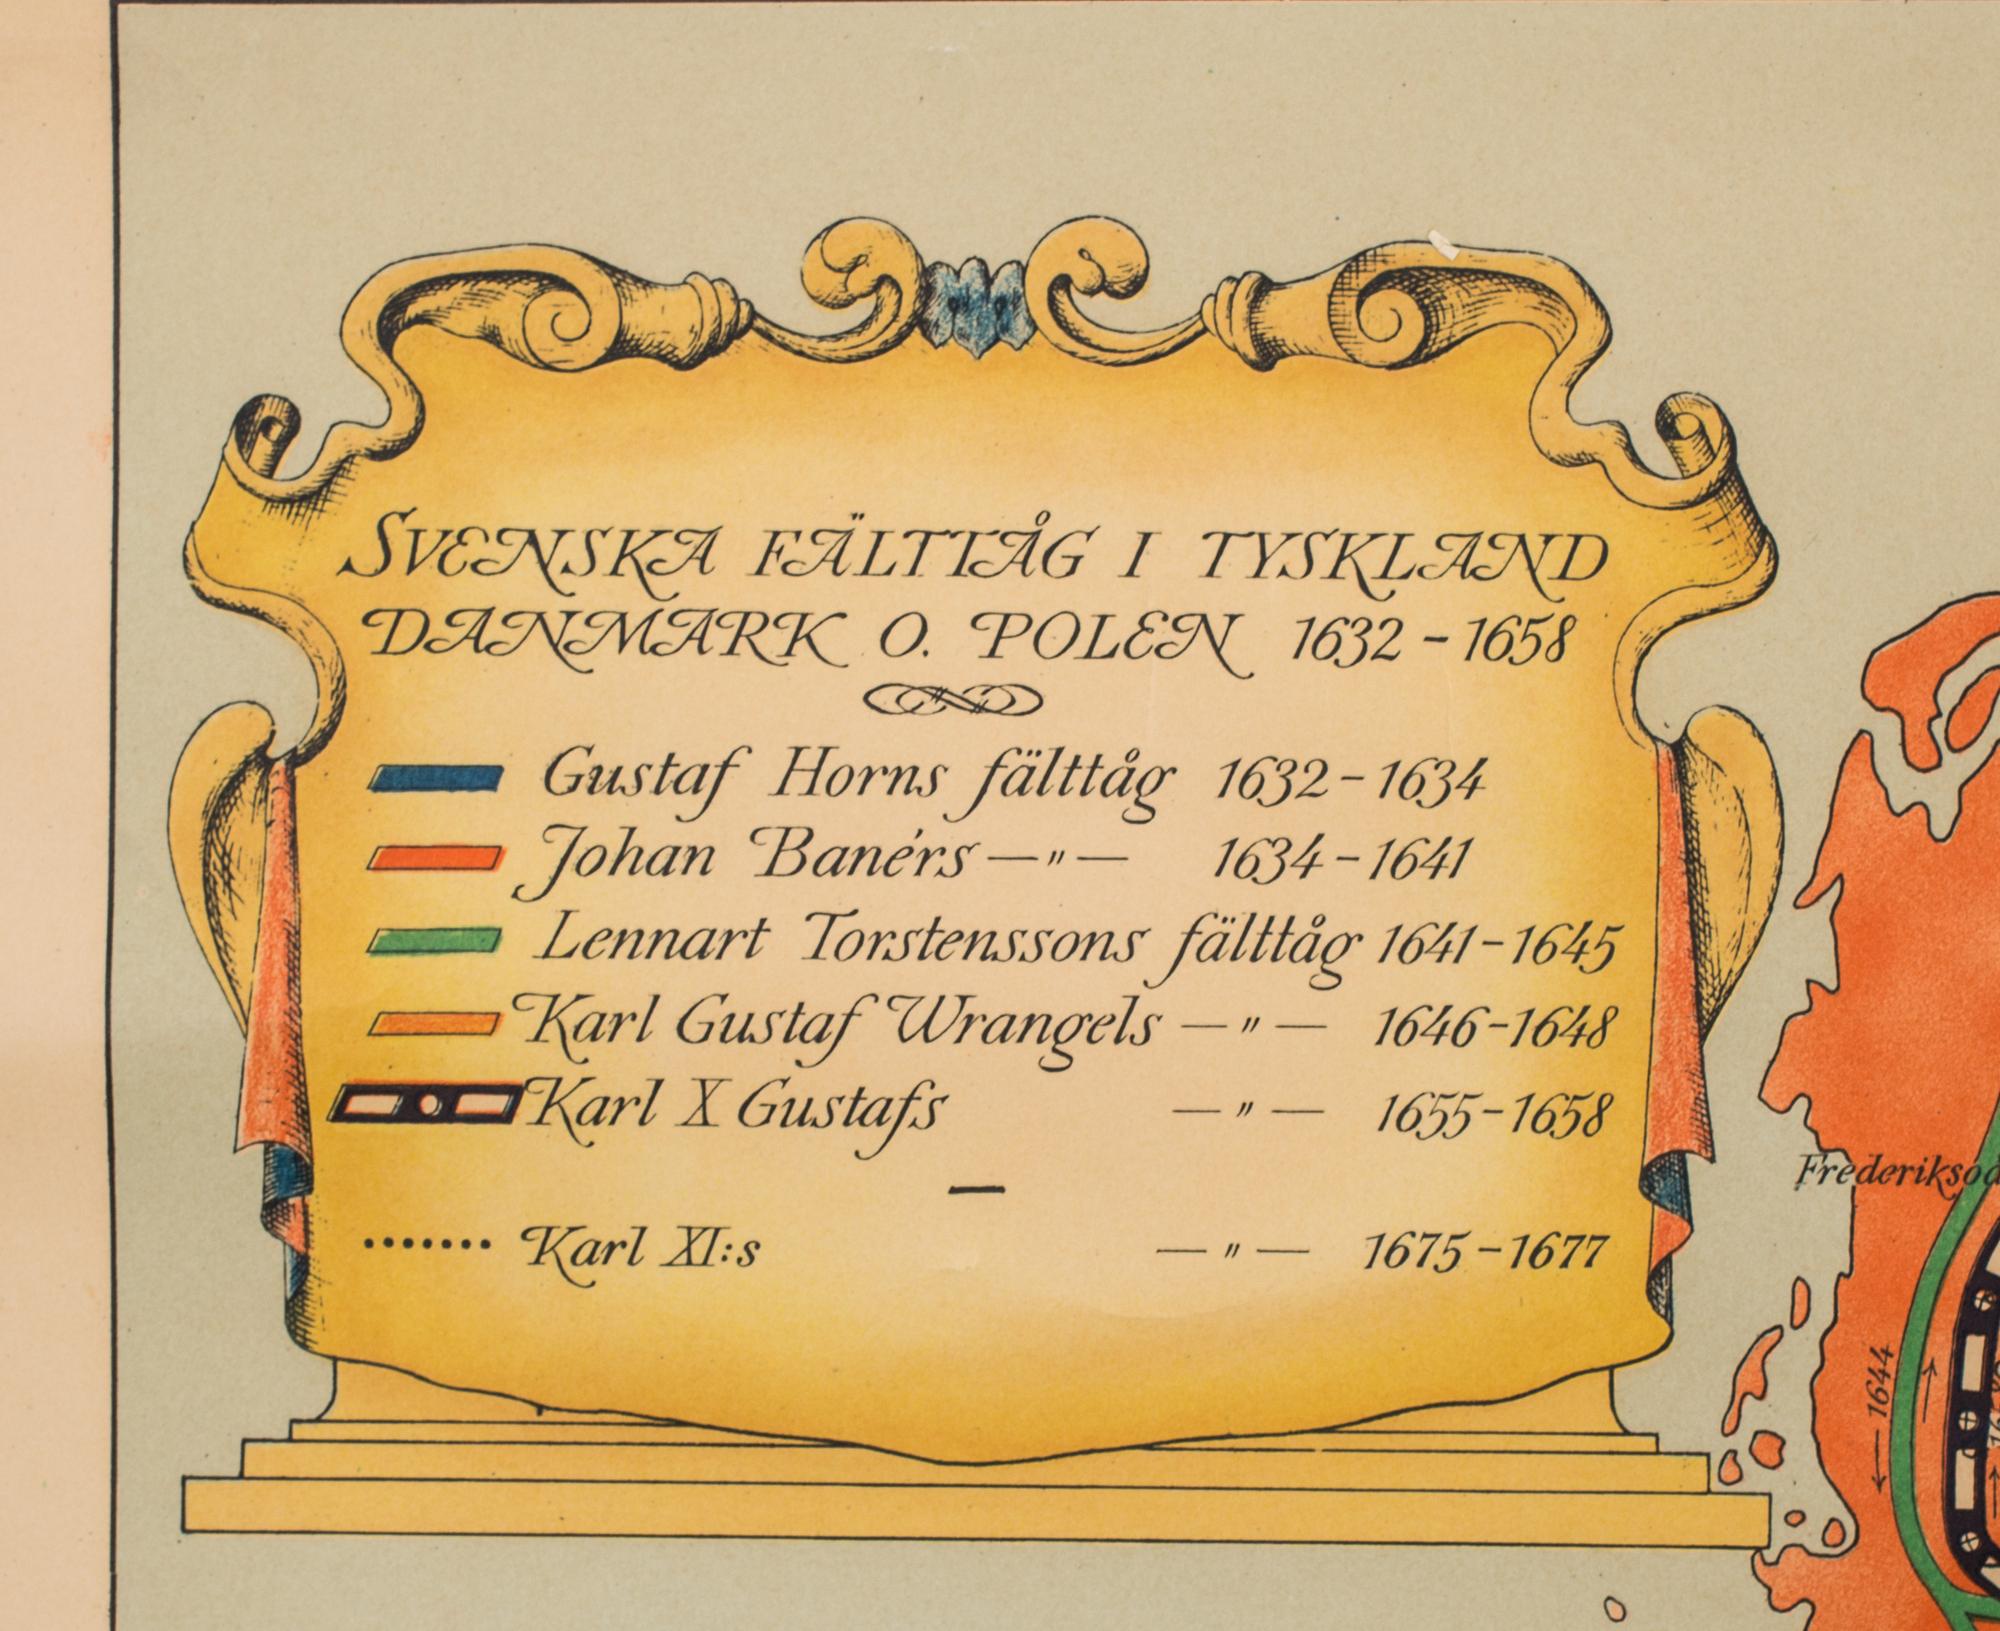 SVENSKA FÄLTTÅG I TYSKLAND
DANMARK O. POLEN 1632 - 1658
Gustaf Horns fälttåg 1632 - 1634
Johan Banérs — " — 1634 - 1641
Lennart Torstenssons fälttåg 1641 - 1645
Karl Gustaf Wrangels — " — 1646 - 1648
Karl X Gustafs — " — 1655 - 1658
Karl XI:s — " — 1675 - 1677
1644